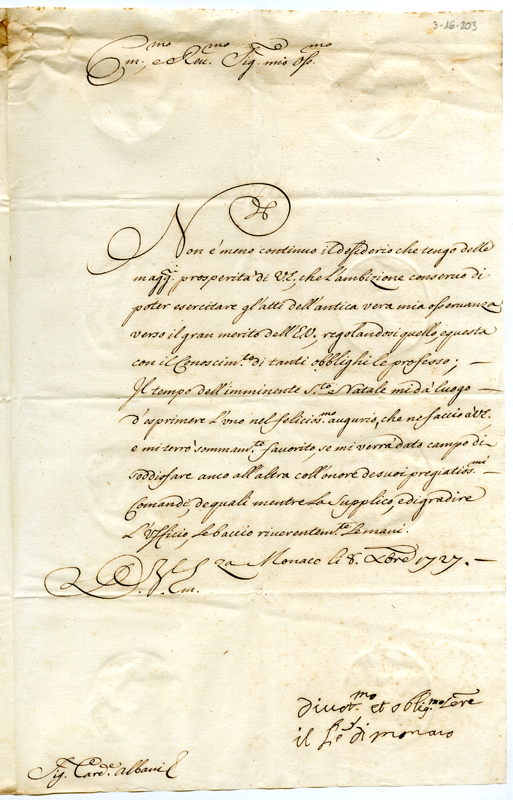 3-16-203
Em.mo e Reu.mo Sig.e mio Oss.mo
Non é meno continuo il desiderio che tengo delle
magg.ri prosperità di V.E., che l'ambizione conseruo di
poter esercitare gl'atti dell'antica vera mia osseruanza
verso il gran merito dell'E.V., regolandosi quello, e questa
con il Conoscim.to di tanti obblighi le professo; —
Il tempo dell'imminente S.to Natale mi dà luogo —
d'esprimere l'vno nel felicios.mo augurio, che ne faccio à V.E.
e mi terrò sommam.te favorito, se mi verrà dato campo di
soddisfare anco all'altra coll'onore de suoi pregiatiss.mi
Comandi, de quali mentre la Supplico, e di gradire
l'Vfficio, le baccio riverentem.te le mani.
Monaco li 8. Xbre 1727. —
D. V. Em.
diuot.mo et oblig.mo Sere
il Pe di monaco
Sig. Card.e Albani